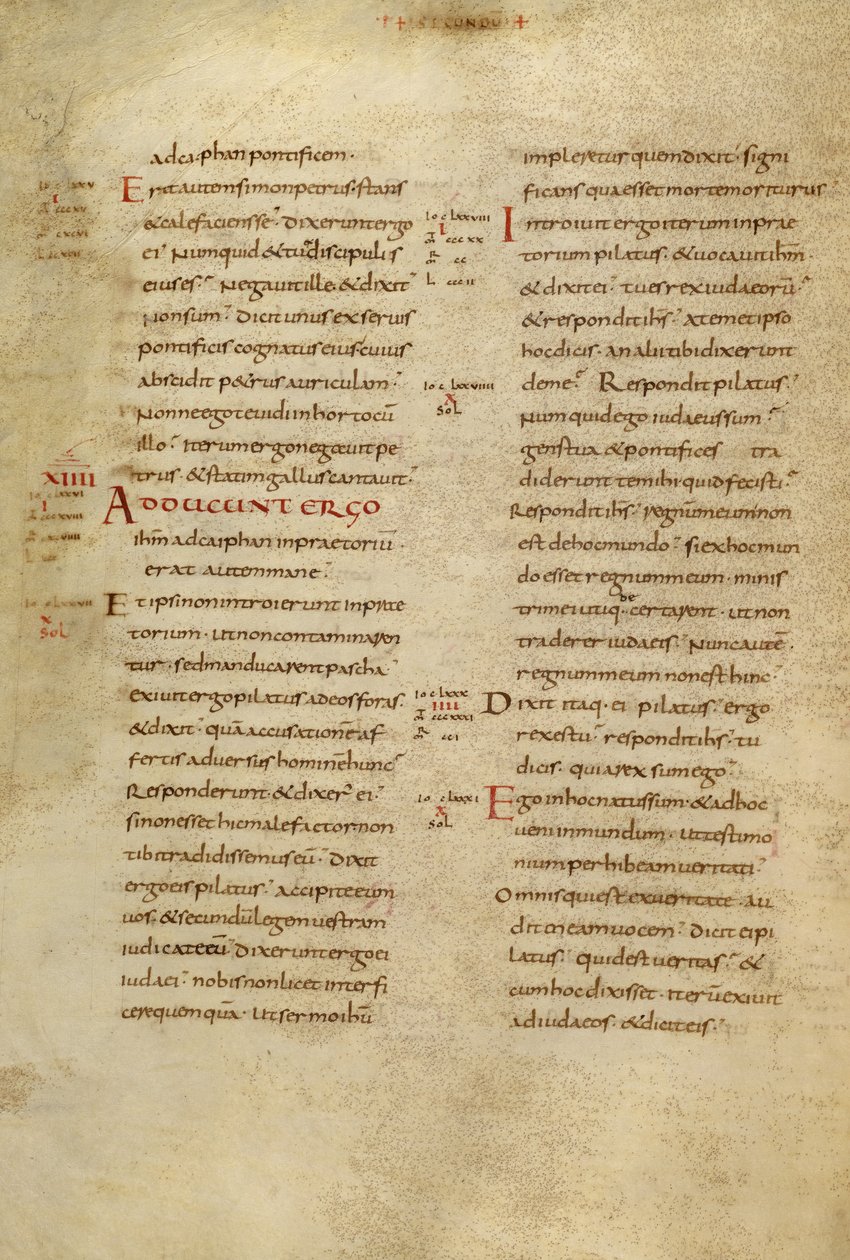 + SECUNDŪ +
adcaiphan pontificem·
Erat autem simon petrus· stans
& calefaciens se· dixerunt ergo
ei· Numquid & tu discipulis
eius es· Negavit ille· & dixit
Non sum· Dicit unus ex servis
pontificis cognatus eius· cuius
abscidit p&rus auriculam·
Nonne ego te vidi in horto cū
illo· Iterum ergo negavit pe
trus· & statim gallus cantavit·
XIIII
ADDUCUNT ERGO
ihm̄ ad caiphan in praetoriū·
erat autem mane·
Et ipsi non introierunt in prae
torium· ut non contaminaren
tur· sed manducarent pascha·
exivit ergo pilatus ad eos foras·
& dixit· quā accusationē af
fertis adversus hominē hunc·
Responderunt· & dixer̄ ei·
si non esset hic malefactor non
tibi tradidissemus eū· Dixit
ergo eis pilatus· accipite eum
vos· & secundū legem vestram
iudicate eū· Dixerunt ergo ei
iudaei· nobis non licet interfi
cere quem quā· Ut sermo ihū
io c lxxvii
X
SOL
impleretur quem dixit· signi
ficans qua esset morte moriturus·
Introivit ergo iterum in prae
torium pilatus· & vocavit ihm̄·
& dixit ei· tu es rex iudaeorū·
& respondit ihs̄· a temet ipso
hoc dicis· an alii tibi dixerunt
de me· Respondit pilatus·
Numquid ego iudaeus sum·
gens tua & pontifices tra
diderunt te mihi· quid fecisti·
Respondit ihs̄· regnū meum non
est de hoc mundo· si ex hoc mun
do esset regnum meum· minis
tri mei utiq· decertarent· ut non
traderer iudaeis· Nunc autē·
regnum meum non est hinc·
Dixit itaq· ei pilatus· ergo
rex es tu· respondit ihs̄· tu
dicis· quia rex sum ego·
Ego in hoc natus sum· & ad hoc
veni in mundum· ut testimo
nium perhibeam veritati·
Omnis qui est ex veritate· au
dit meam vocem· Dicit ei pi
latus· quid est veritas· &
cum hoc dixisset· iterū exivit
ad iudaeos· & dicit eis·
io c lxxviii
I
m̄ ccc xx
R cc
L ccc ii
io c lxxviiii
X
SOL
io c lxxx
IIII
m̄ ccc xxi
R
m̄ cci
io c lxxxi
X
SOL